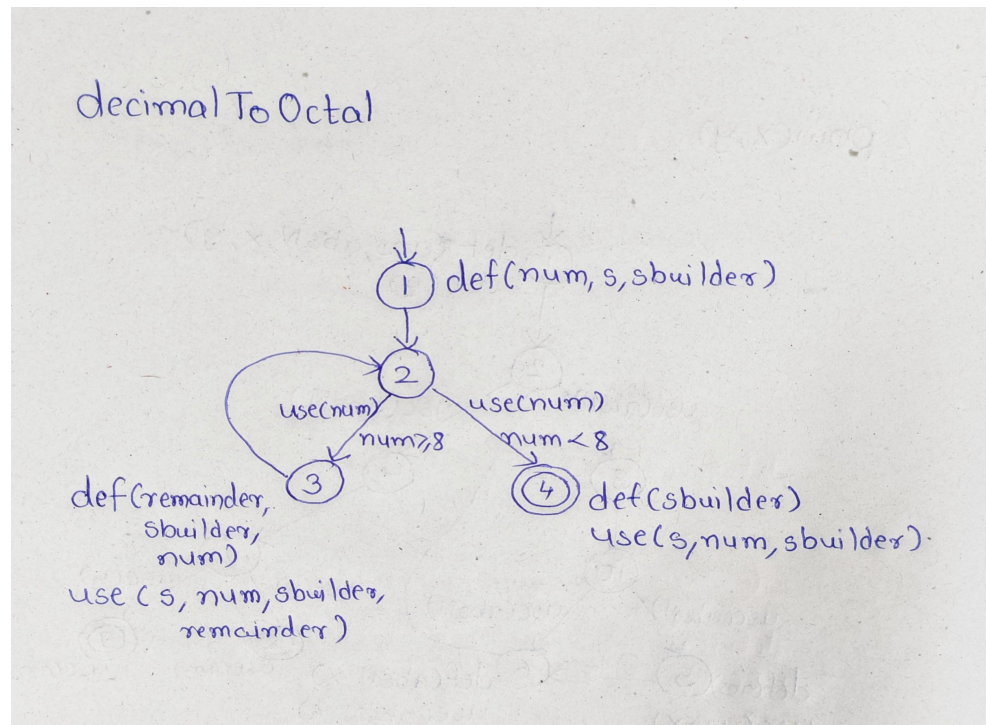 decimalToOctal
1 def(num, s, sbuilder)
2
use(num) use(num)
num≥8 num<8
3
4
def(remainder,
sbuilder,
num)
use (s, num, sbuilder,
remainder)
def(sbuilder)
use(s, num, sbuilder).